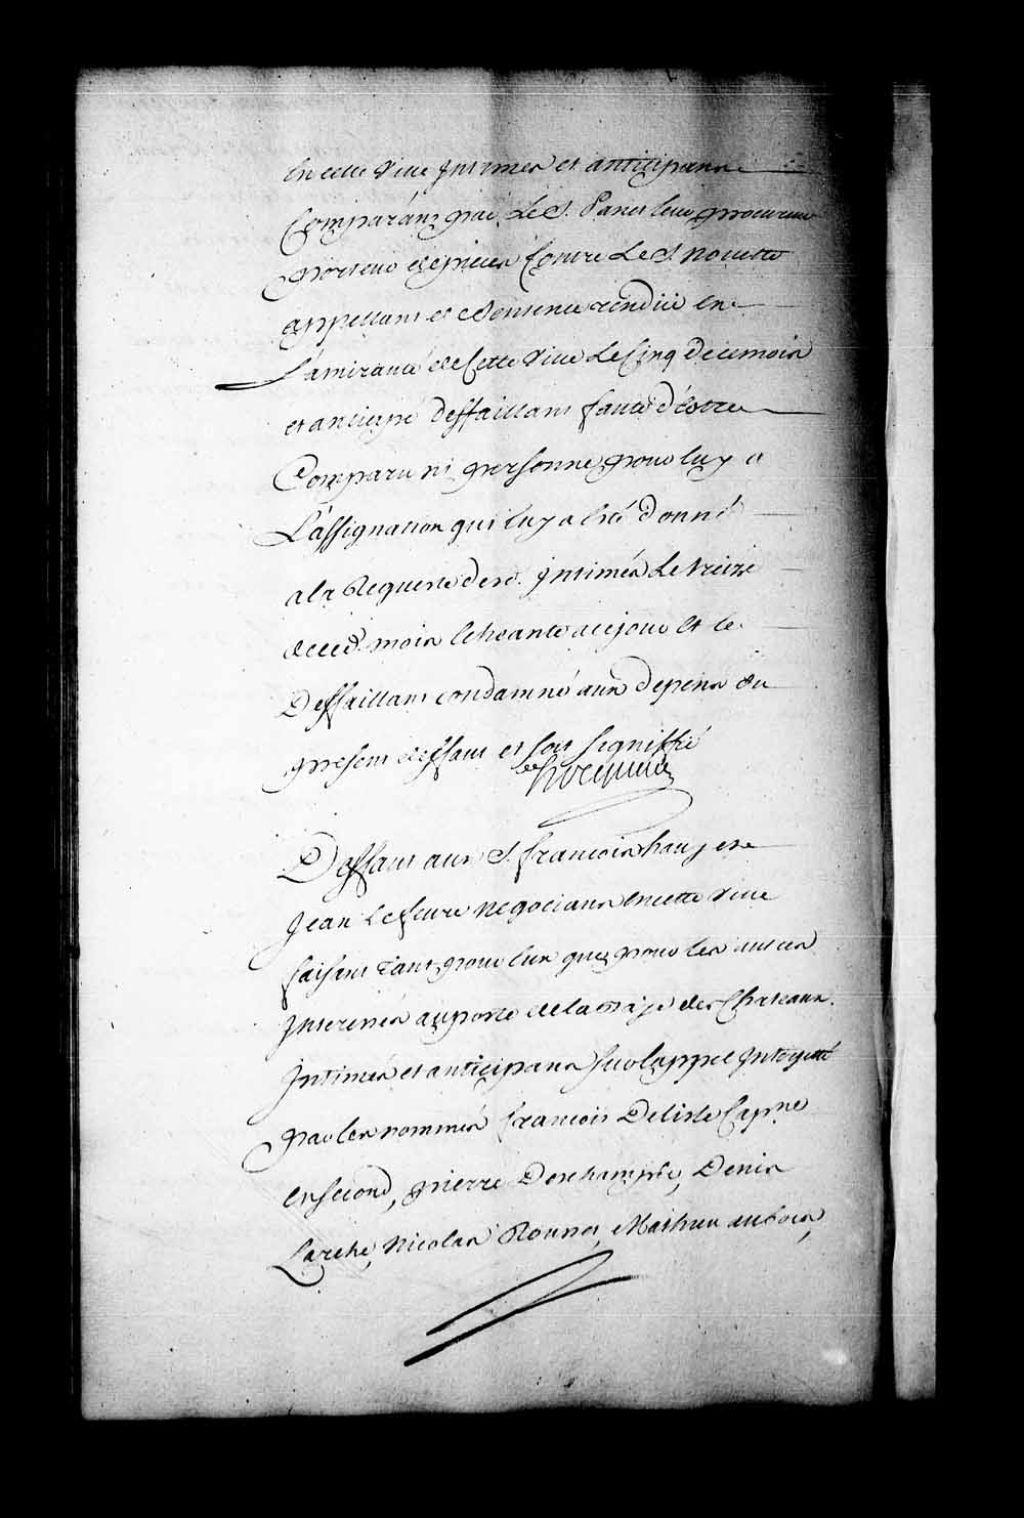 En cette Ville Intimés et anticipans
Comparans par Le S. Panet leur procureur
porteur de pieces Contre Le S. Nouette
appellant de Sentence rendüe En
L'amirauté de Cette Ville Le Cinq de ce mois
et anticipé deffaillant faute d'Estre
Comparu ni personne pour luy a
L'assignation qui luy a Eté donné
a la Requeste desd. Intimés Le treize
de ced. mois Echeante a ce jour Et le
Deffaillant condamné aux depens du
present deffaut et soit signiffié
hocquart
Deffaut aux S. francois havy et
Jean Lefevre Negocians En cette Ville
faisant tant pour Eux que pour les autres
Interessés au poste de la Baye des Chateaux
Intimés et anticipans sur l'appel Interjetté
par les nommés francois Delisle Cap.ne
En second, pierre Deschamps, Denis
Larche, Nicolas Mathieu